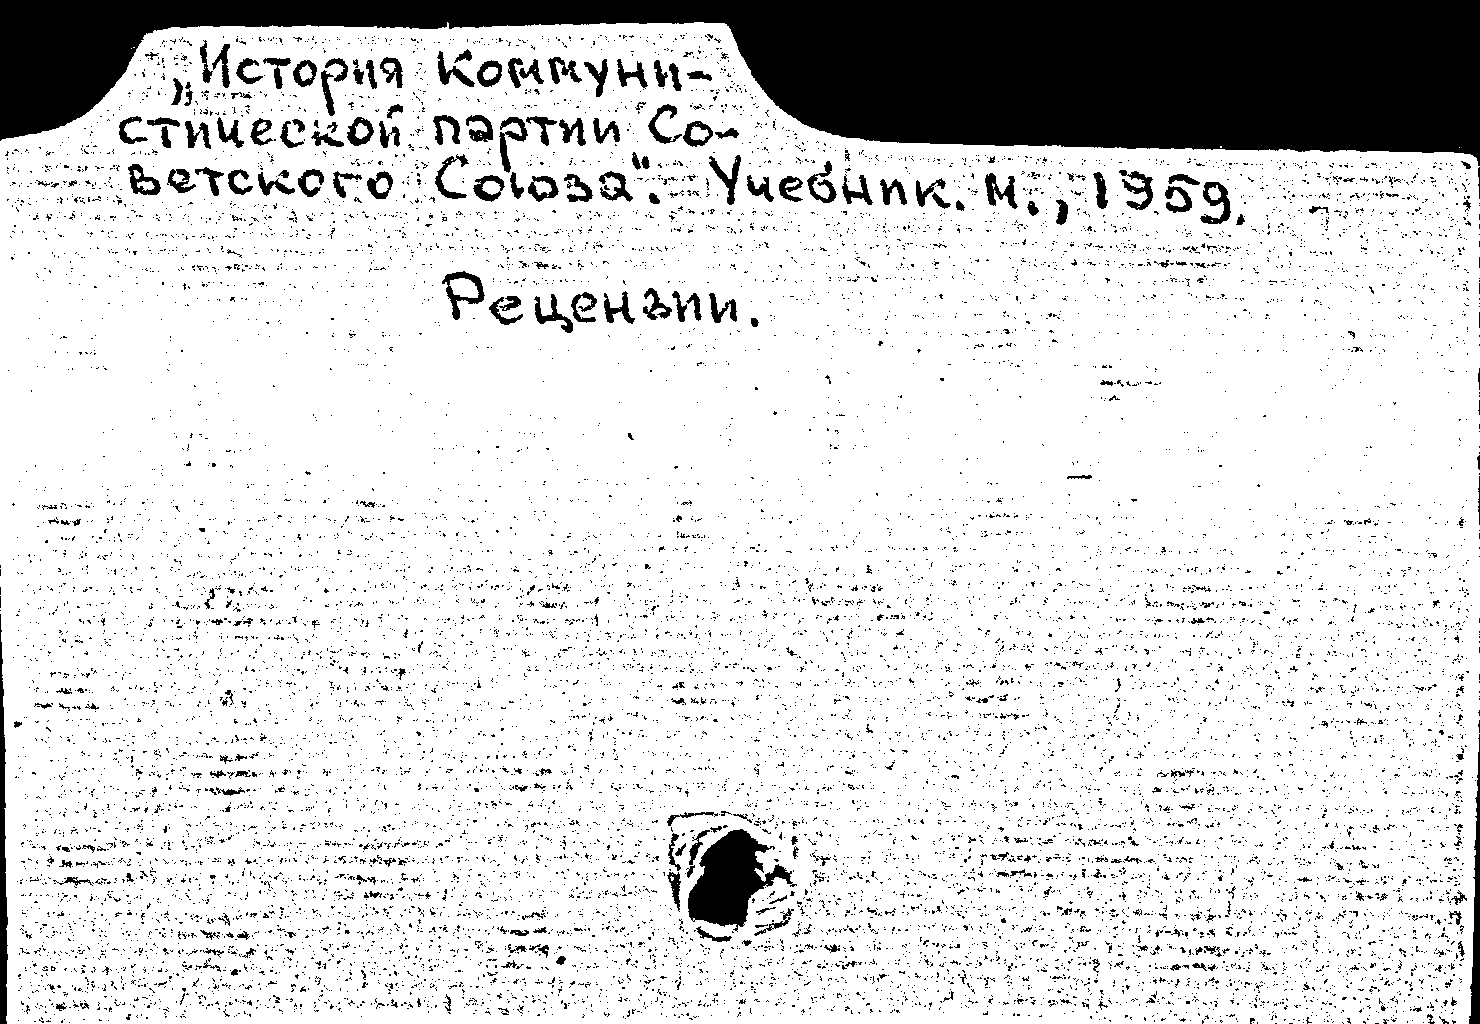 „История Коммуни-
стической партии Со-
ветского Союза". Учебник. М., 1959.
Рецензии.